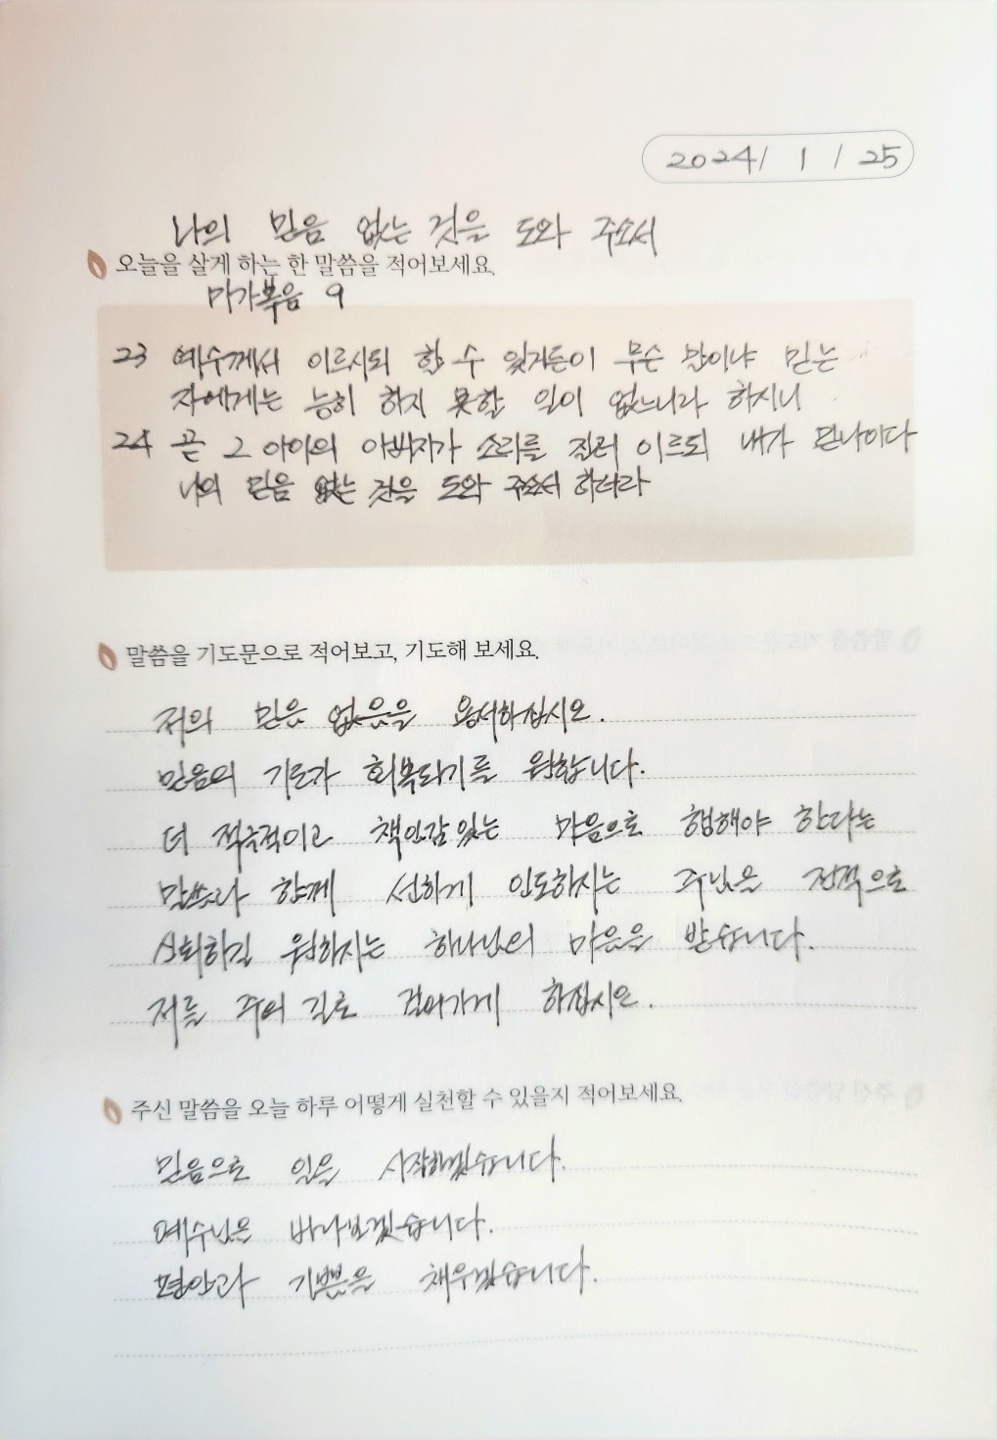 2024/ 1 / 25
나의 믿음 없는 것을 도와 주소서
오늘을 살게 하는 한 말씀을 적어보세요.
마가복음 9
23 예수께서 이르시되 할 수 있거든이 무슨 말이냐 믿는
자에게는 능히 하지 못할 일이 없느니라 하시니
24 곧 그 아이의 아버지가 소리를 질러 이르되 내가 믿나이다
나의 믿음 없는 것을 도와 주소서 하더라
말씀을 기도문으로 적어보고, 기도해 보세요.
저의 믿음 없음을 용서하십시오.
믿음의 기도가 회복되기를 원합니다.
더 적극적이고 책임감있는 마음으로 행해야 한다는
말씀과 함께 선하게 인도하시는 주님을 전적으로
신뢰하길 원하시는 하나님의 마음을 받습니다.
저를 주의 길로 걸어가게 하십시오.
주신 말씀을 오늘 하루 어떻게 실천할 수 있을지 적어보세요.
믿음으로 일을 시작하겠습니다.
예수님을 바라보겠습니다.
평안과 기쁨을 채우겠습니다.